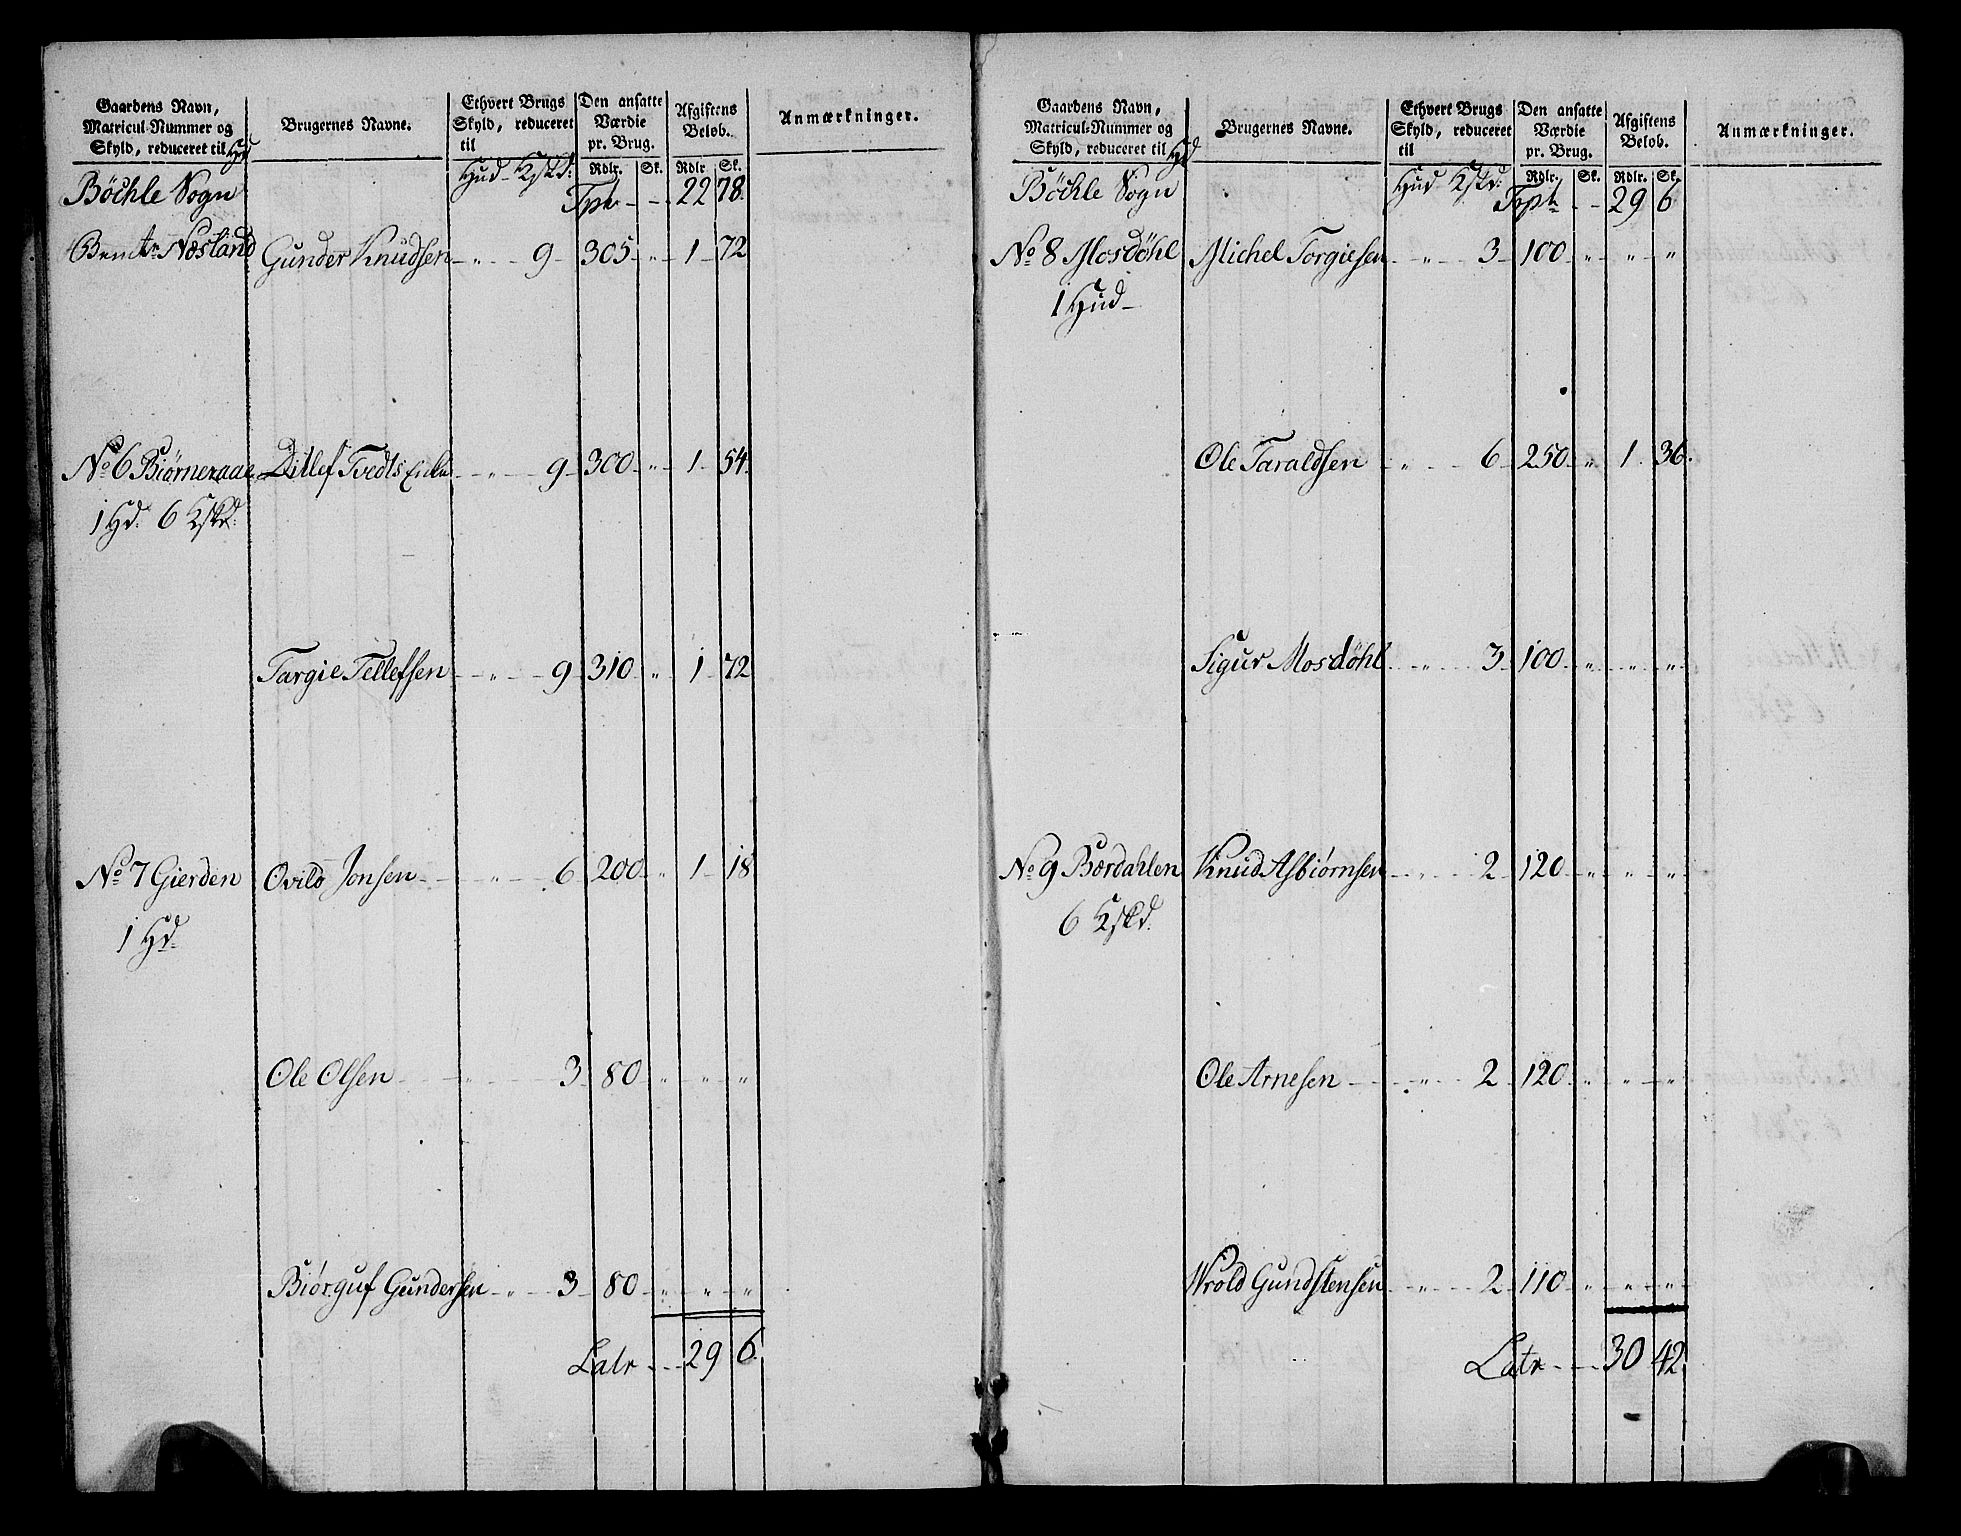 Gaardens Navn, Matricul-Nummer og Skyld, reduceret til Hud
Brugernes Navne.
Ethvert Brugs Skyld, reduceret til
Den ansatte Værdie pr. Brug.
Afgiftens Beløb.
Anmærkninger.
Hud Kskd: Rdlr. Sk. Rdlr. Sk.
Böchle Sogn Tpt 22 78.
Næsland Gunder Knudsen " 9 305 " 1 72
No 6 Biørneraae Ditlef Tvedts Enke " 9 300 " 1 54
1 Hd. 6 Kskd:
Targie Tellefsen " 9 310 " 1 72
No 7 Gierden Ovild Jonsen " 6 200 " 1 18
1 Hd.
Ole Olsen " 3 80 " " "
Biørguf Gundersen " 3 80 " " "
Latr 29 6.
Gaardens Navn, Matricul-Nummer og Skyld, reduceret til Hd
Brugernes Navne.
Ethvert Brugs Skyld, reduceret til
Den ansatte Værdie pr. Brug.
Afgiftens Beløb.
Anmærkninger.
Hud Kskd: Rdlr. Sk. Rdlr. Sk.
Böchle Sogn Tpt 29 6
No 8 Mosdöhl Michel Torgiesen " 3 100 " " "
1 Hud
Ole Taraldsen " 6 250 " 1 36.
Sigur Mosdöhl " 3 100 " " "
No 9 Bordahlen Knud Asbiørnsen " 2 120 " " "
6 Kskd.
Ole Arnesen " 2 120 " " "
Wrold Gundstensen " 2 110 " " "
Latr 30 42.